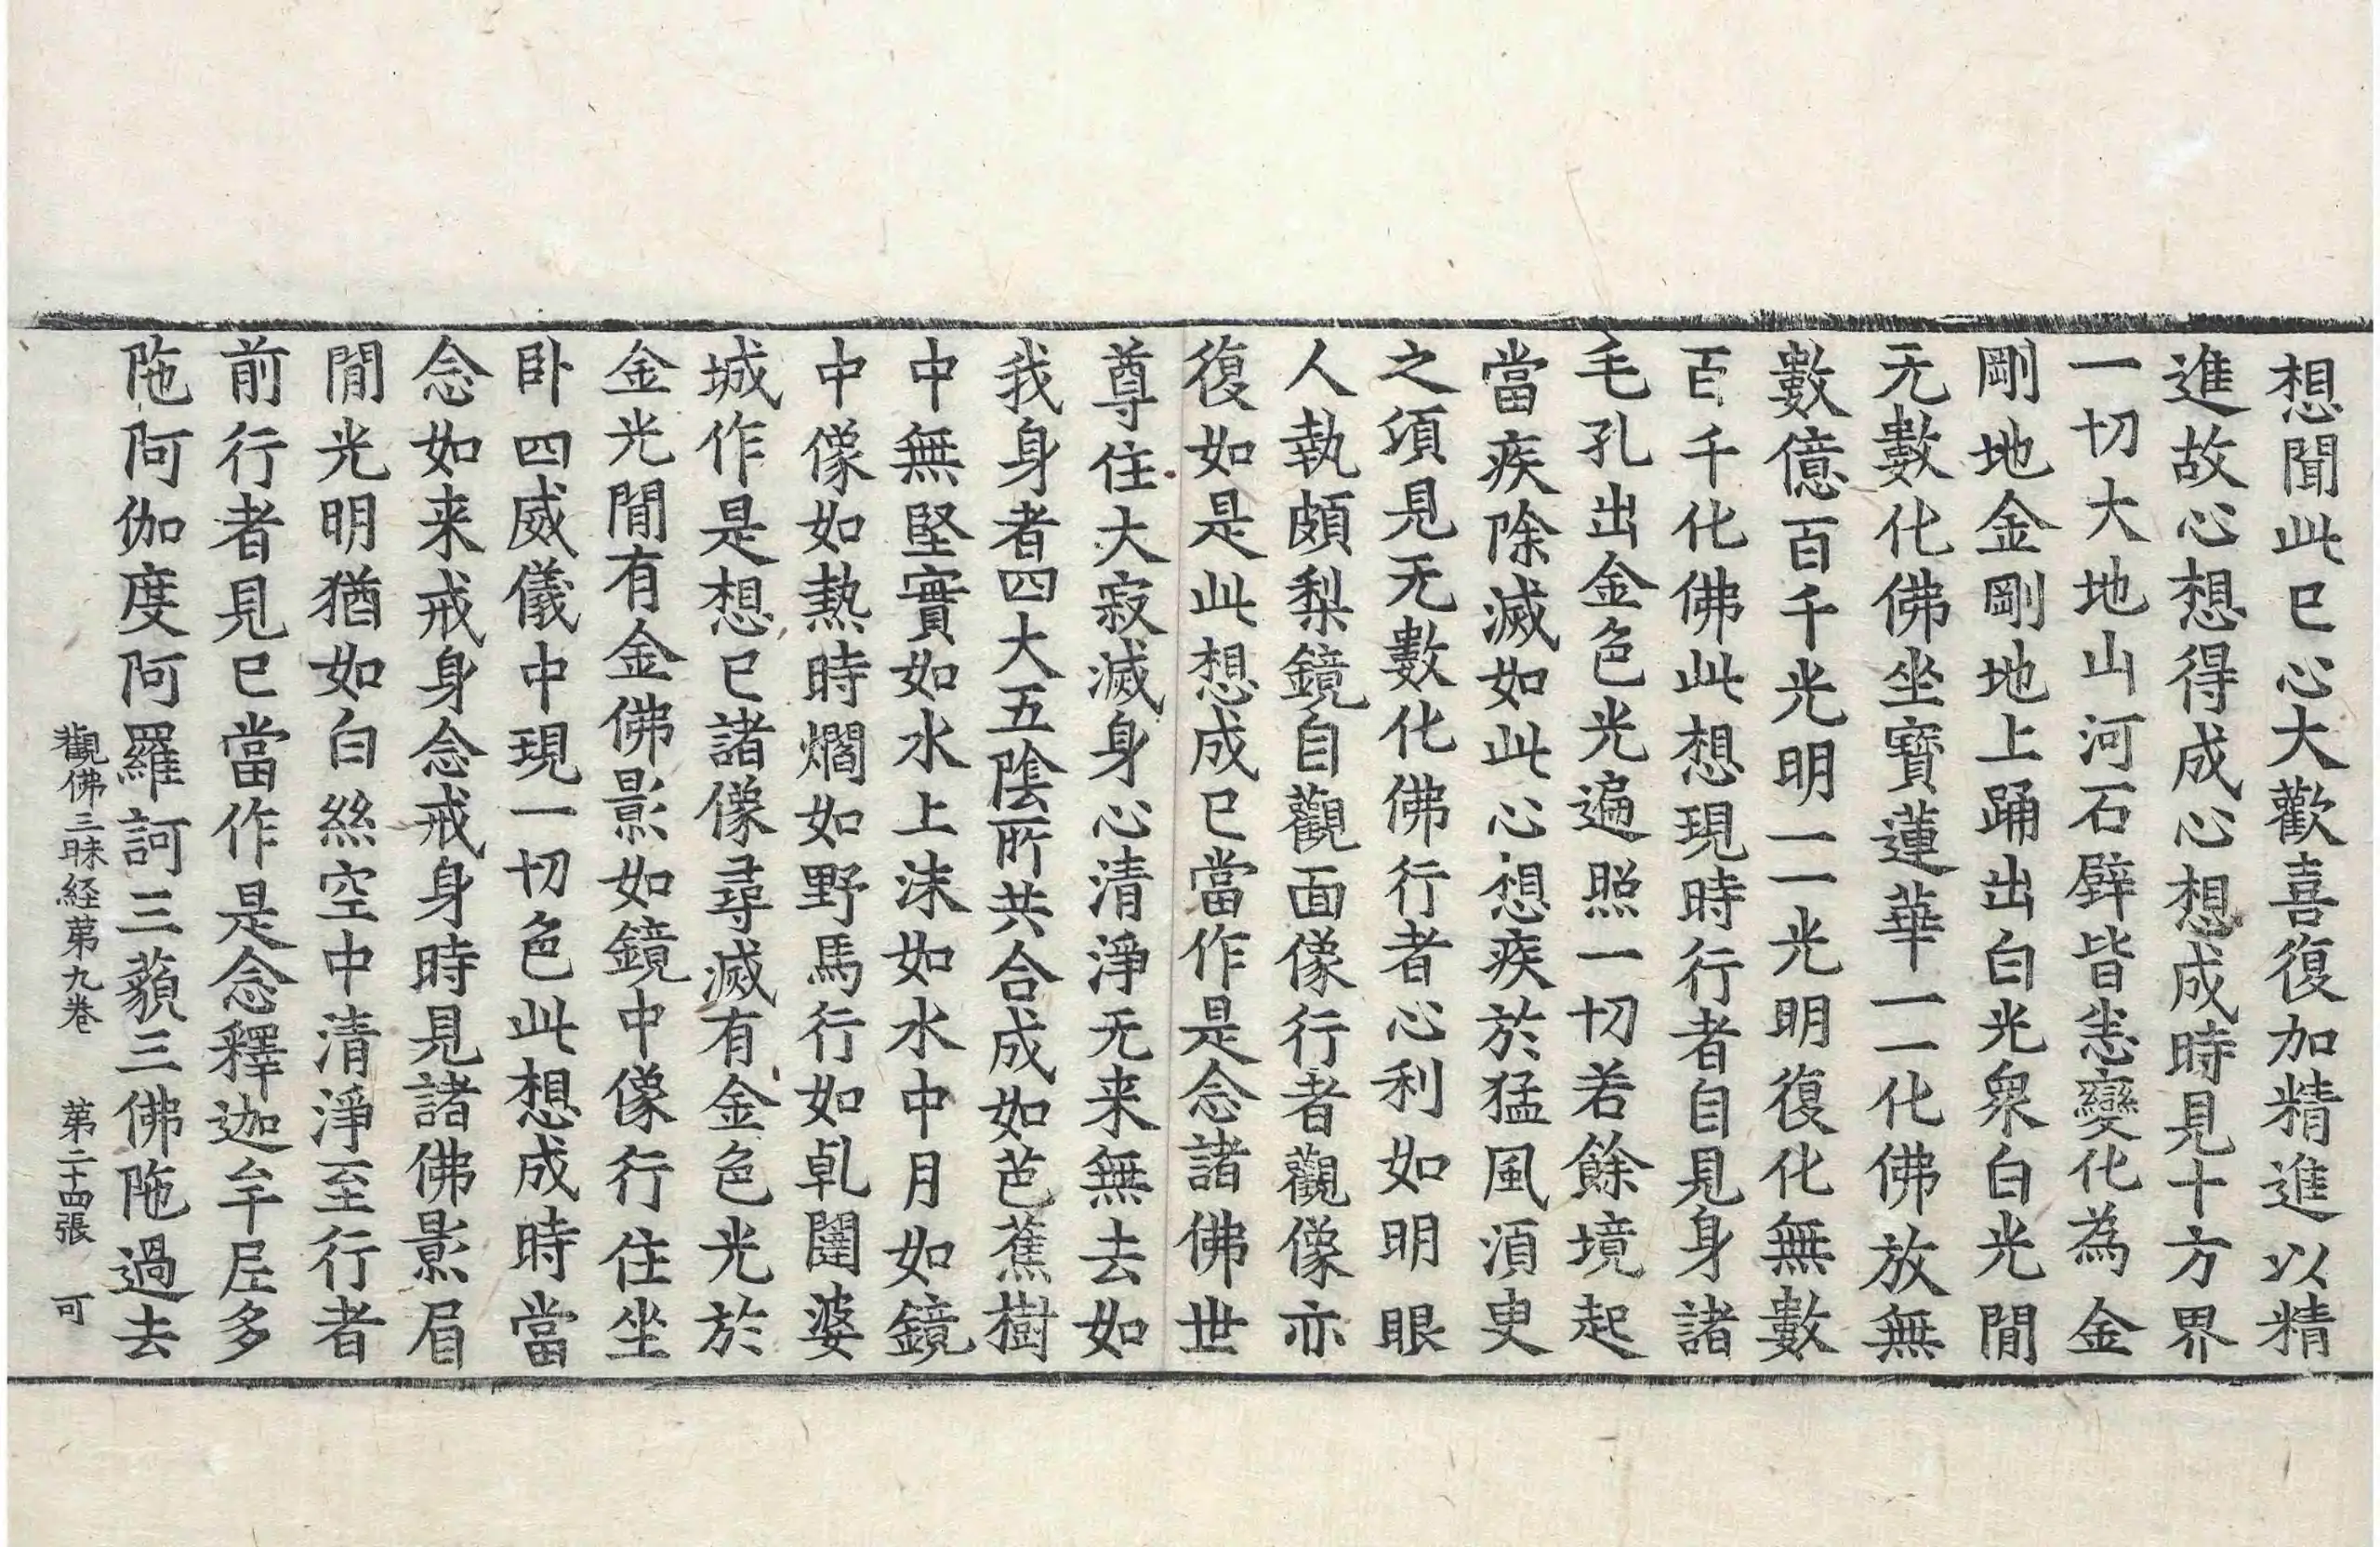 想聞此已心大歡喜復加精進以精
進故心想得成心想成時見十方界
一切大地山河石壁皆悉變化為金
剛地金剛地上踊出白光衆白光閒
无數化佛坐寶蓮華一一化佛放無
數億百千光明一一光明復化無數
百千化佛此想現時行者自見身諸
毛孔出金色光遍照一切若餘境起
當疾除滅如此心想疾於猛風湏臾
之湏見无數化佛行者心利如明眼
人執頗梨鏡自觀面像行者觀像亦
復如是此想成已當作是念諸佛世
尊住大寂滅身心清淨无来無去如
我身者四大五陰所共合成如芭蕉樹
中無堅實如水上沫如水中月如鏡
中像如熱時爓如野馬行如乹闥婆
城作是想已諸像尋滅有金色光於
金光閒有金佛影如鏡中像行住坐
卧四威儀中現一切色此想成時當
念如来戒身念戒身時見諸佛影眉
閒光明猶如白絲空中清淨至行者
前行者見已當作是念釋迦牟尼多
陁阿伽度阿羅訶三藐三佛陁過去
觀佛三昧経苐九卷　苐二十四張　可